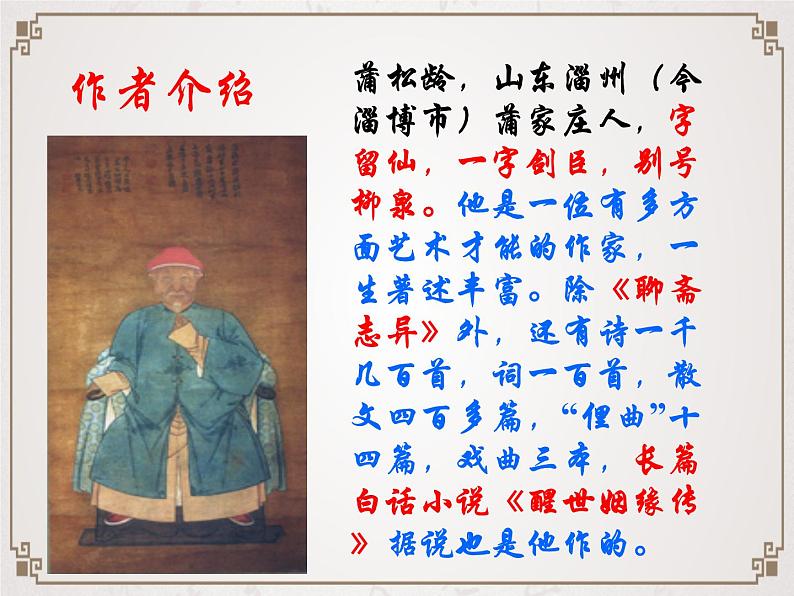 作者介绍
蒲松龄，山东淄州（今
淄博市）蒲家庄人，字
留仙，一字剑臣，别号
柳泉。他是一位有多方
面艺术才能的作家，一
生著述丰富。除《聊斋
志异》外，还有诗一千
几百首，词一百首，散
文四百多篇，“俚曲”十
四篇，戏曲三本，长篇
白话小说《醒世姻缘传
》据说也是他作的。